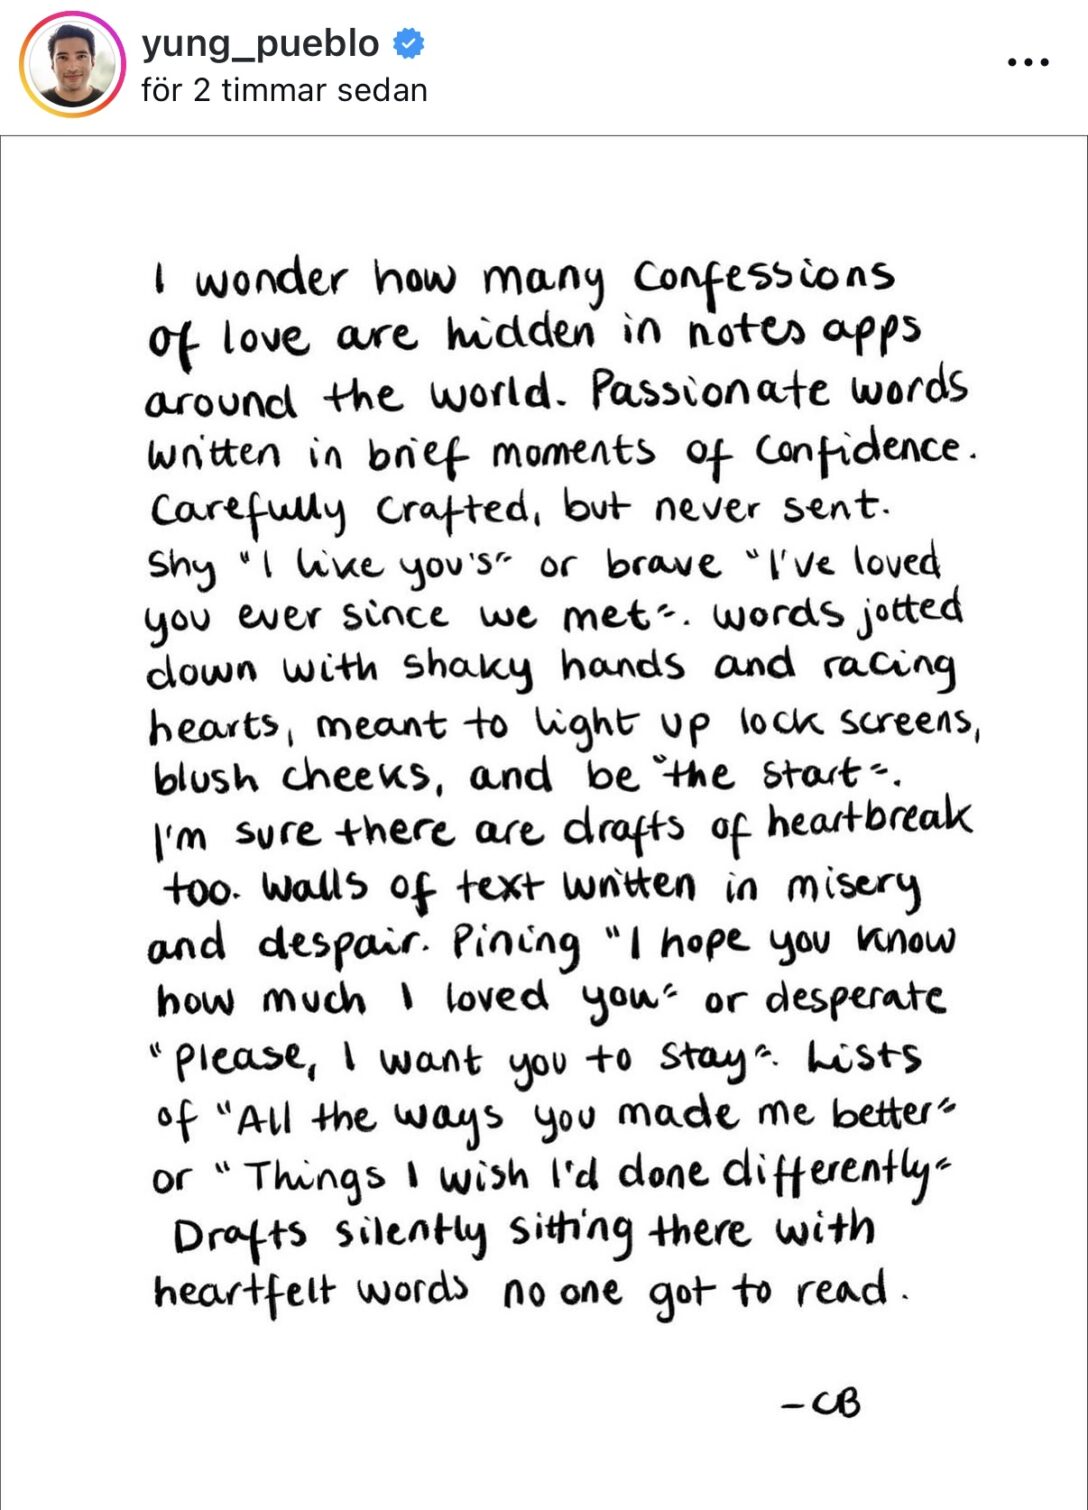 yung_pueblo
för 2 timmar sedan
I wonder how many confessions
of love are hidden in notes apps
around the world. Passionate words
written in brief moments of confidence.
Carefully crafted, but never sent.
Shy "I like you's" or brave "I've loved
you ever since we met". Words jotted
down with shaky hands and racing
hearts, meant to light up lock screens,
blush cheeks, and be "the start".
I'm sure there are drafts of heartbreak
too. Walls of text written in misery
and despair. Pining "I hope you know
how much I loved you" or desperate
"Please, I want you to stay". Lists
of "All the ways you made me better"
or "Things I wish I'd done differently"
Drafts silently sitting there with
heartfelt words no one got to read.
-CB